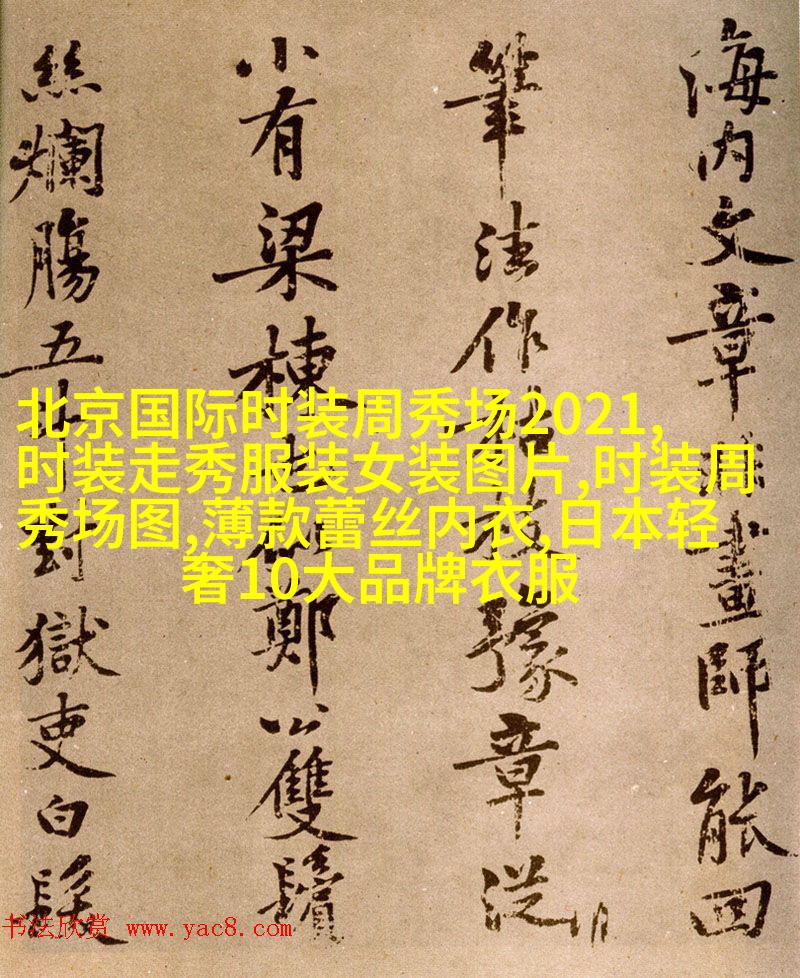 海内文章畫師能回
筆法作枝豫章從
小有梁棟鄭公雙鬢
絲爛腸五對獄吏白髮
北京国际时装周秀场2021,
时装走秀服装女装图片,时装周
秀场图,薄款蕾丝内衣,日本轻
奢10大品牌衣服
书法欣赏 www.yac8.com